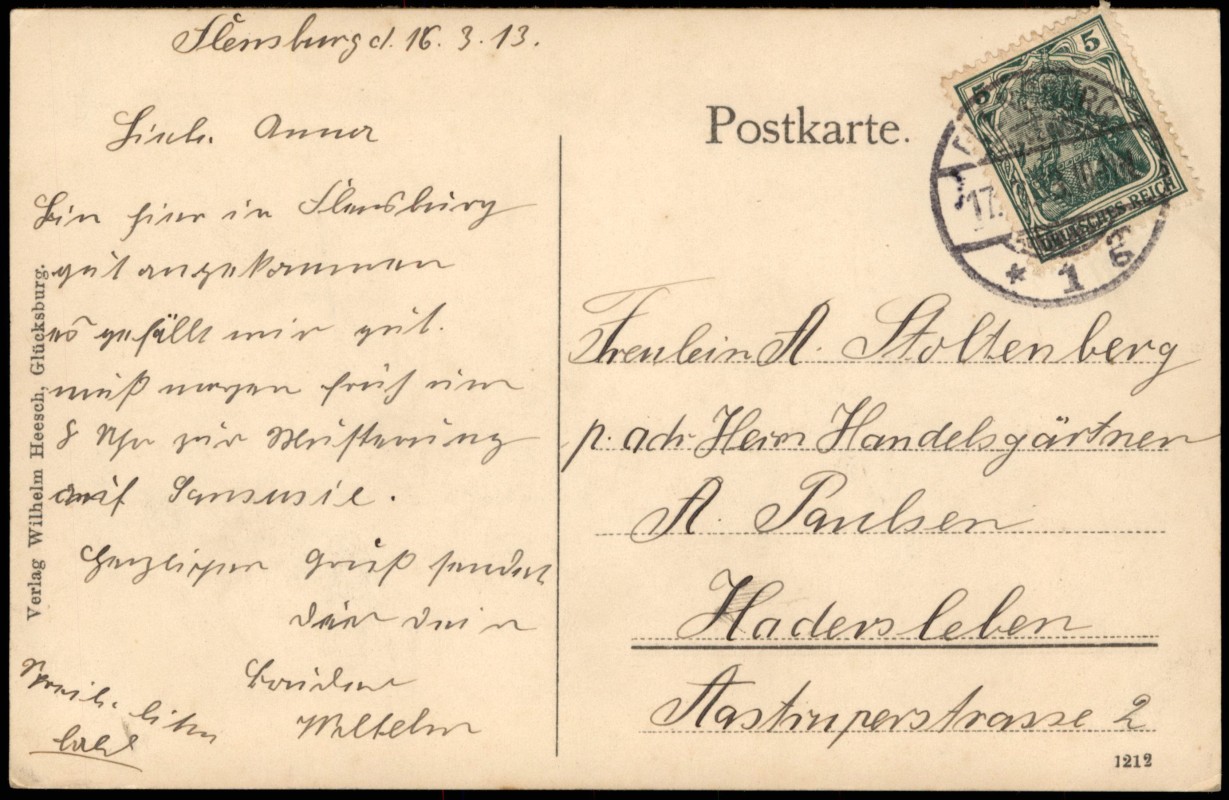 Flensburg d. 16. 3. 13.
Liebe Anna
Bin hier in Flensburg
gut angekommen
es gefällt mir gut.
muß morgen früh um
8 Uhr zur Musterung
auf Sansusie.
Herzlichen Gruß sendet
dein
Bruder
Wilhelm
Schreib bitte
bald
Verlag Wilhelm Heesch, Glücksburg.
Postkarte.
5 5
DEUTSCHES REICH
17.
* 1 g
Freulein A. Stoltenberg
p. adr Herrn Handelsgärtner
A. Paulsen
Hadersleben
Aastruperstrasse 2
1212